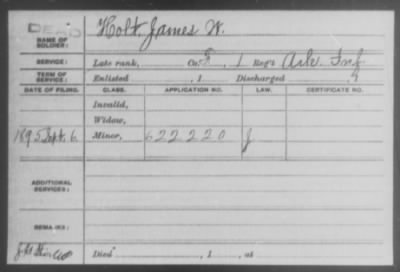 DEAD
NAME OF SOLDIER: Holt, James W.
SERVICE: Late rank, Co. F, 1 Reg't Ark. Inf
TERM OF SERVICE: Enlisted , 1 Discharged , 1
DATE OF FILING. CLASS. APPLICATION NO. LAW. CERTIFICATE NO.
Invalid,
Widow,
1895 Sept. 6 Minor, 622220 J
ADDITIONAL SERVICES:
REMARKS:
Died , 1 , at